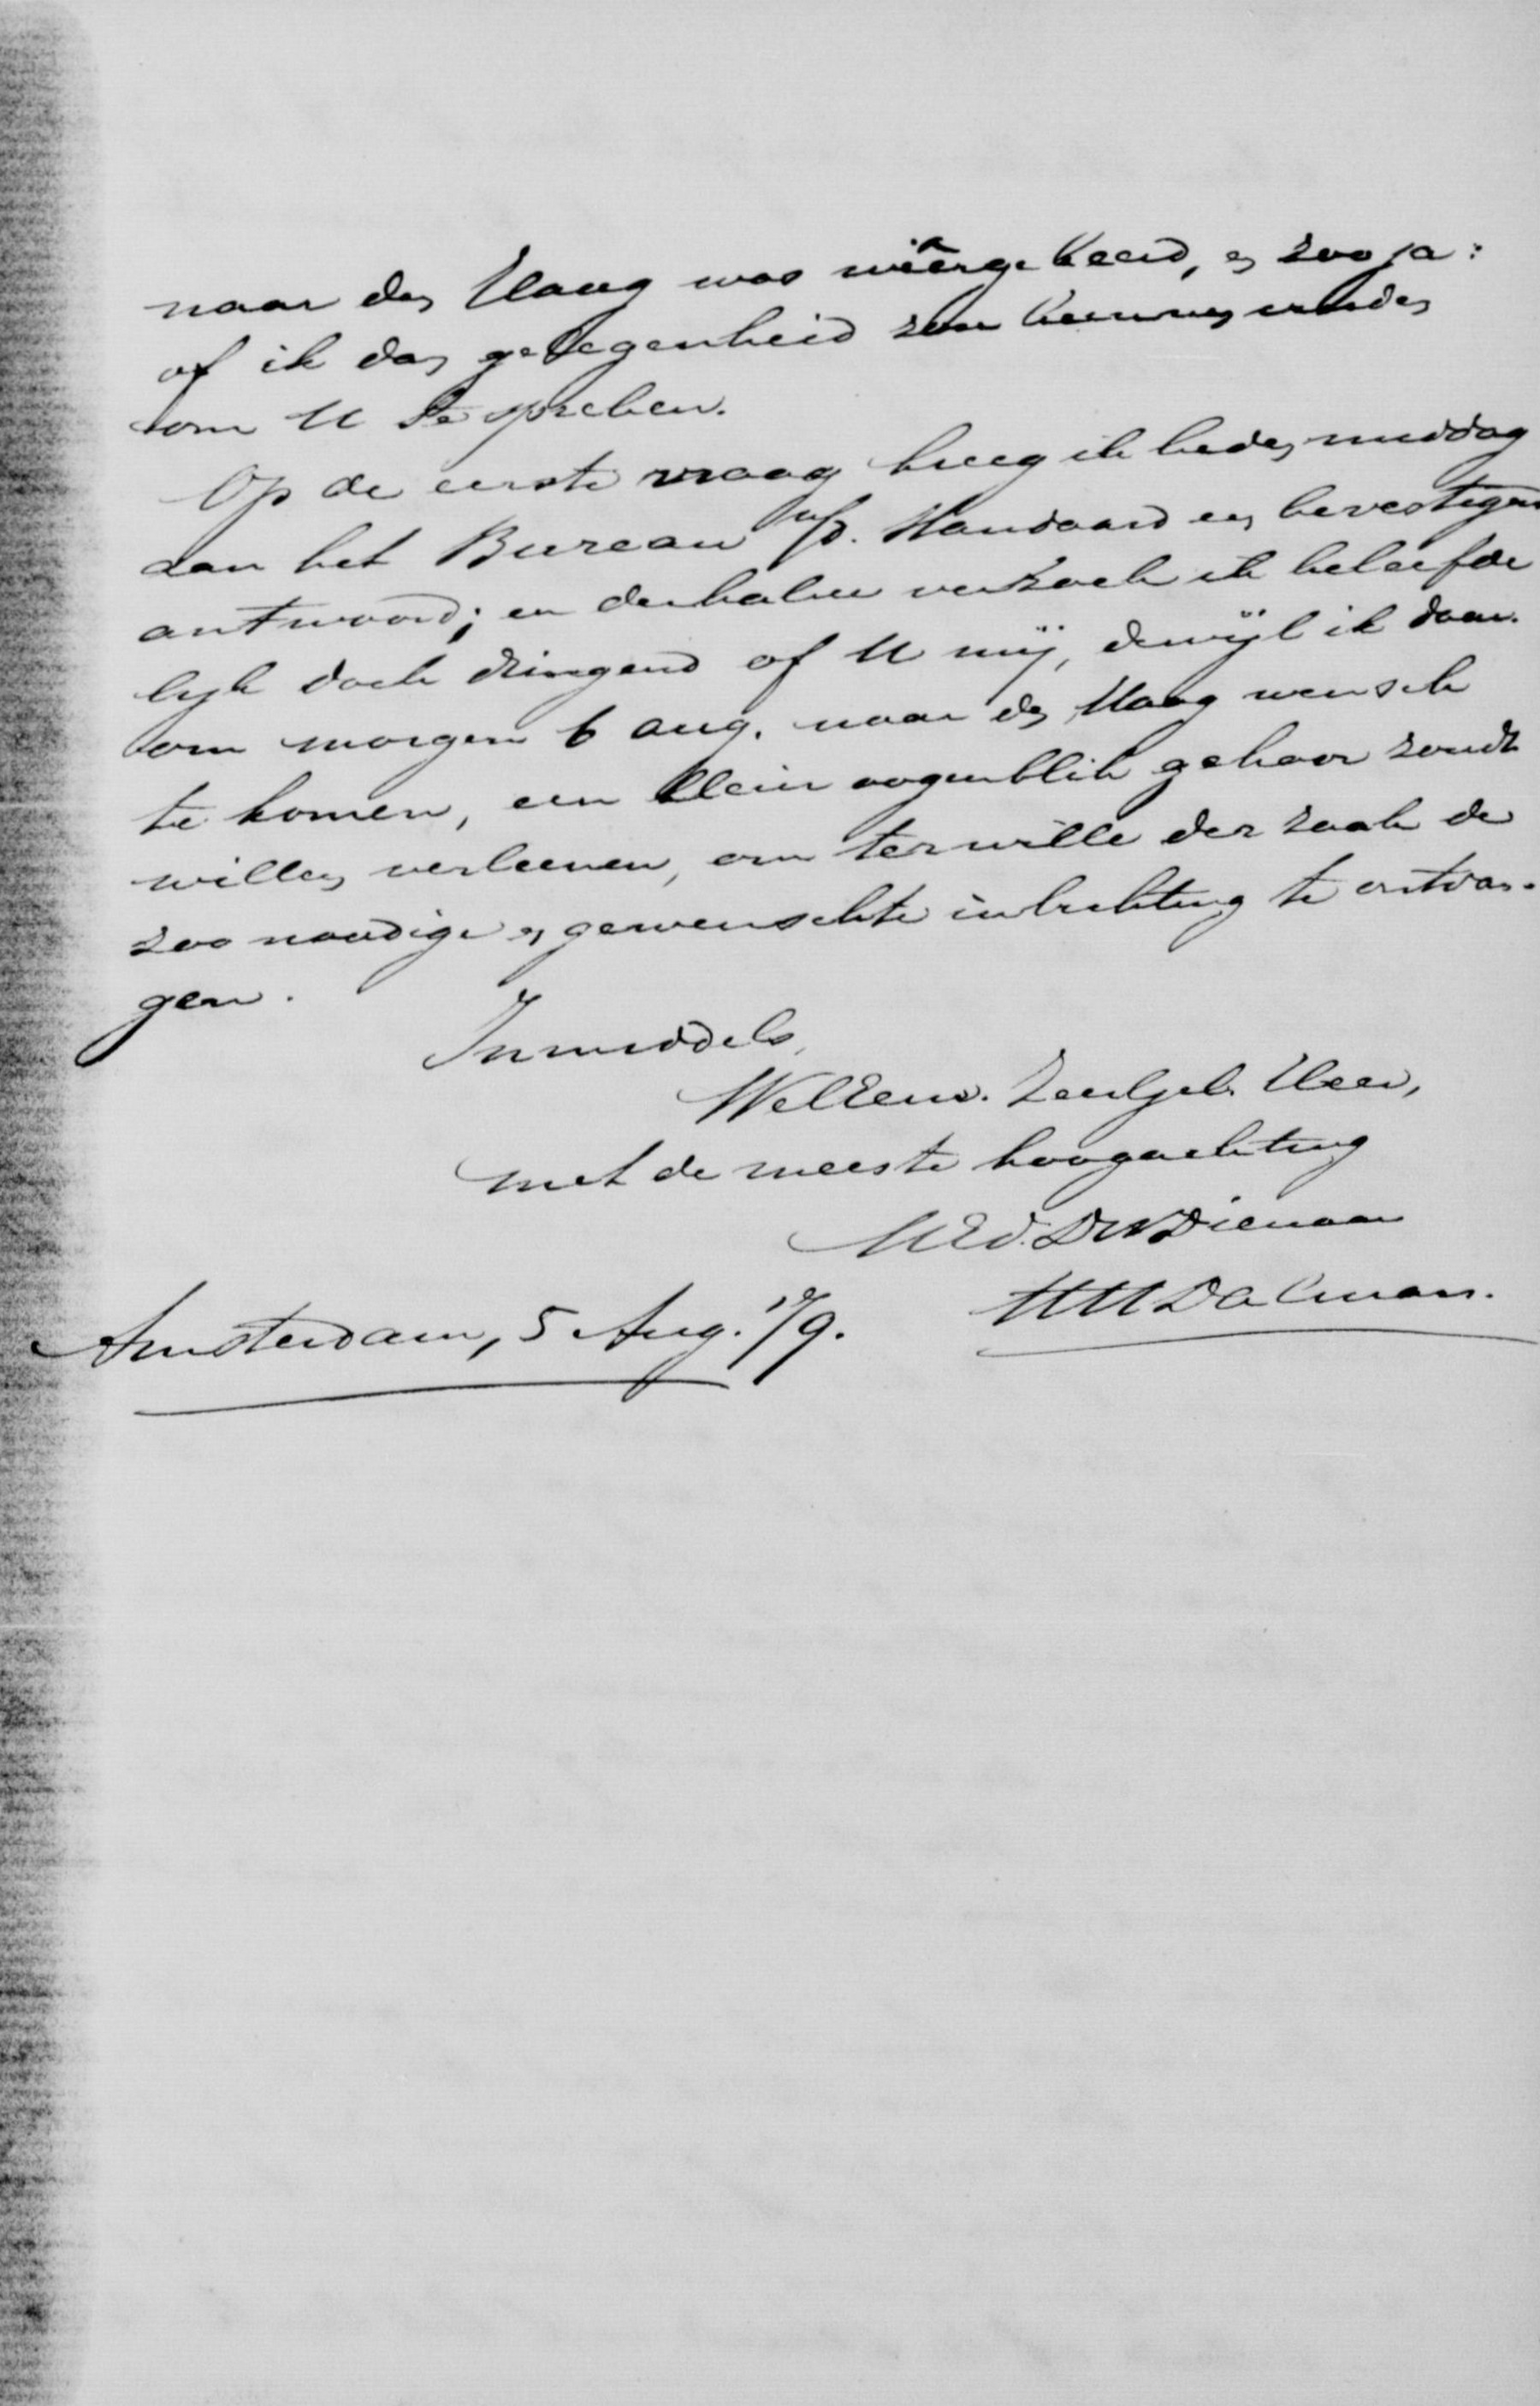 naar den Haag was wêergekeerd, en zoo ja:
of ik dan gelegenheid zou kunnen vinden
om U te spreken.
Op de eerste vraag kreeg ik heden middag
aan het Bureau v/d. Standaard een bevestigend
antwoord; en derhalve verzoek ik beleefde
lyk doch dringend of U mij, dewijl ik daar-
om morgen 6 aug. naar den Haag wensch
te komen, een klein oogenblik gehoor zoudt
willen verleenen, om ter wille der zaak de
zoo noodige en gewenschte inlichting te ontvan-
gen.
Inmiddels,
WelEerw. Zeergel. Heer,
met de meeste hoogachting
UEd. DWDienaar
HH Dalman.
Amsterdam, 5 Aug. '79.